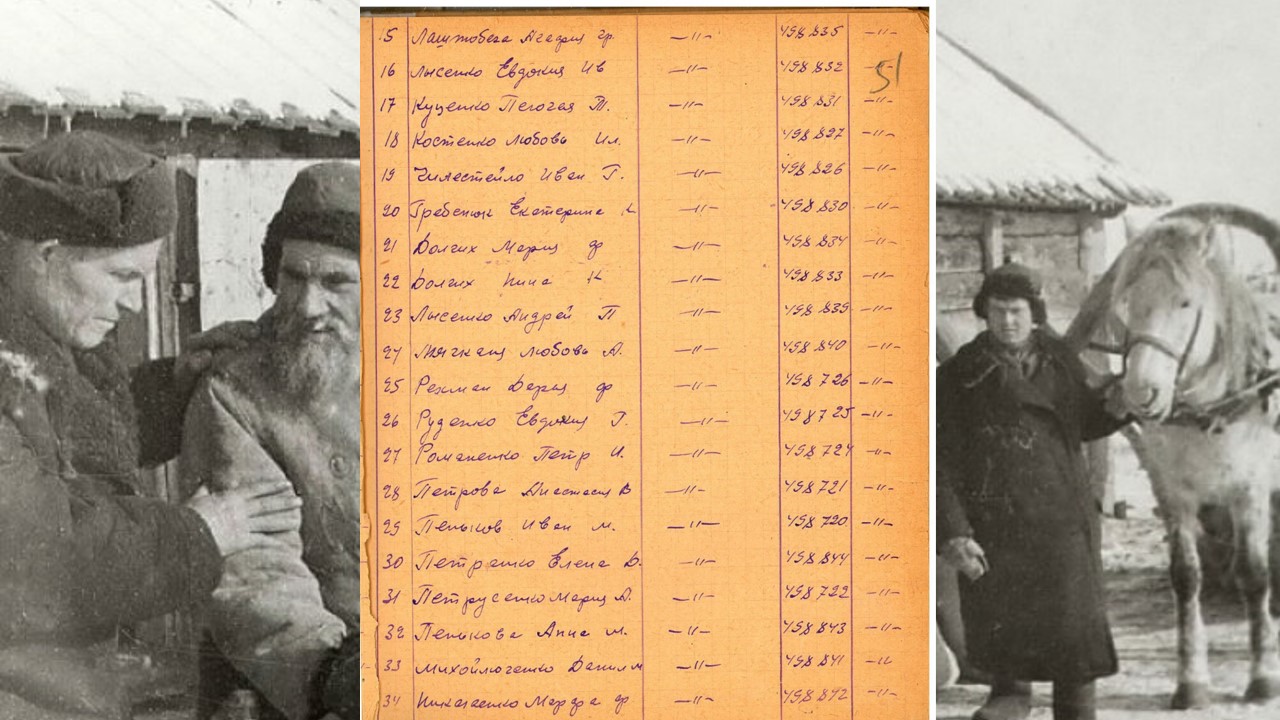 15 Лаштобега Агафия гр. —"— 458835 —"—
51
16 Лысенко Евдокия Ив —"— 458832 —"—
17 Куценко Пелогея Т. —"— 458831 —"—
18 Костенко Любовь Ил. —"— 458827 —"—
19 Иван Г. —"— 458826 —"—
20 Гребенюк Екатерина К —"— 458830 —"—
21 Долгих Мария ф —"— 458834 —"—
22 Долгих Нина К —"— 458833 —"—
23 Лысенко Андрей П —"— 458839 —"—
24 Мягкая Любовь А. —"— 458840 —"—
25 Рекман Дарья ф —"— 458726 —"—
26 Руденко Евдокия Г. —"— 458725 —"—
27 Романенко Петр И. —"— 458724 —"—
28 Петрова Анастасия В —"— 458721 —"—
29 Пеньков Иван М. —"— 458720 —"—
30 Петрашко Елена Д. —"— 458844 —"—
31 Петрусенко Мария А. —"— 458722 —"—
32 Пенькова Анна М. —"— 458843 —"—
33 Михойлюченко Данил М —"— 458841 —"—
34 Марфа ф —"— 458842 —"—